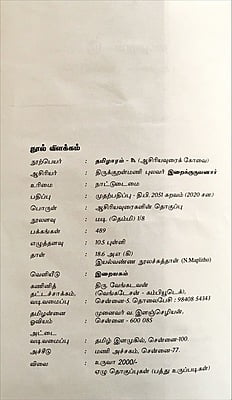 நூல் விளக்கம்
நூற்பெயர் : தமிழாரம் - ௩ (ஆசிரியவுரைக் கோவை)
ஆசிரியர் : திருக்குறள்மணி புலவர் இறைக்குருவனார்
உரிமை : நாட்டுடைமை
பதிப்பு : முதற்பதிப்பு - தி.பி. 2051 சுறவம் (2020 சன.)
பொருள் : ஆசிரியவுரைகளின் தொகுப்பு
நூலளவு : மடி (தெம்மி) 1/8
பக்கங்கள் : 489
எழுத்தளவு : 10.5 புள்ளி
தாள் : 18.6 அள (கி)
இயல்வண்ண நூலச்சுத்தாள் (N.Maplitho)
வெளியீடு : இறைவகம்
கணினித் : திரு. வேங்கடவன்
தட்டச்சாக்கம், (வெங்கடேசன் - கம்பியூடெக்),
வடிவமைப்பு : சென்னை-5. தொலைபேசி : 98408 54341
தமிழன்னை : முனைவர் வ. இளஞ்செழியன்,
ஓவியம் சென்னை - 600 085
அட்டை
வடிவமைப்பு : தமிழ் இளமுகில், சென்னை-100.
அச்சீடு : மணி அச்சகம், சென்னை-77.
விலை : உருவா 2000/-
ஏழு தொகுப்புகள் (பத்து உருப்படிகள்)